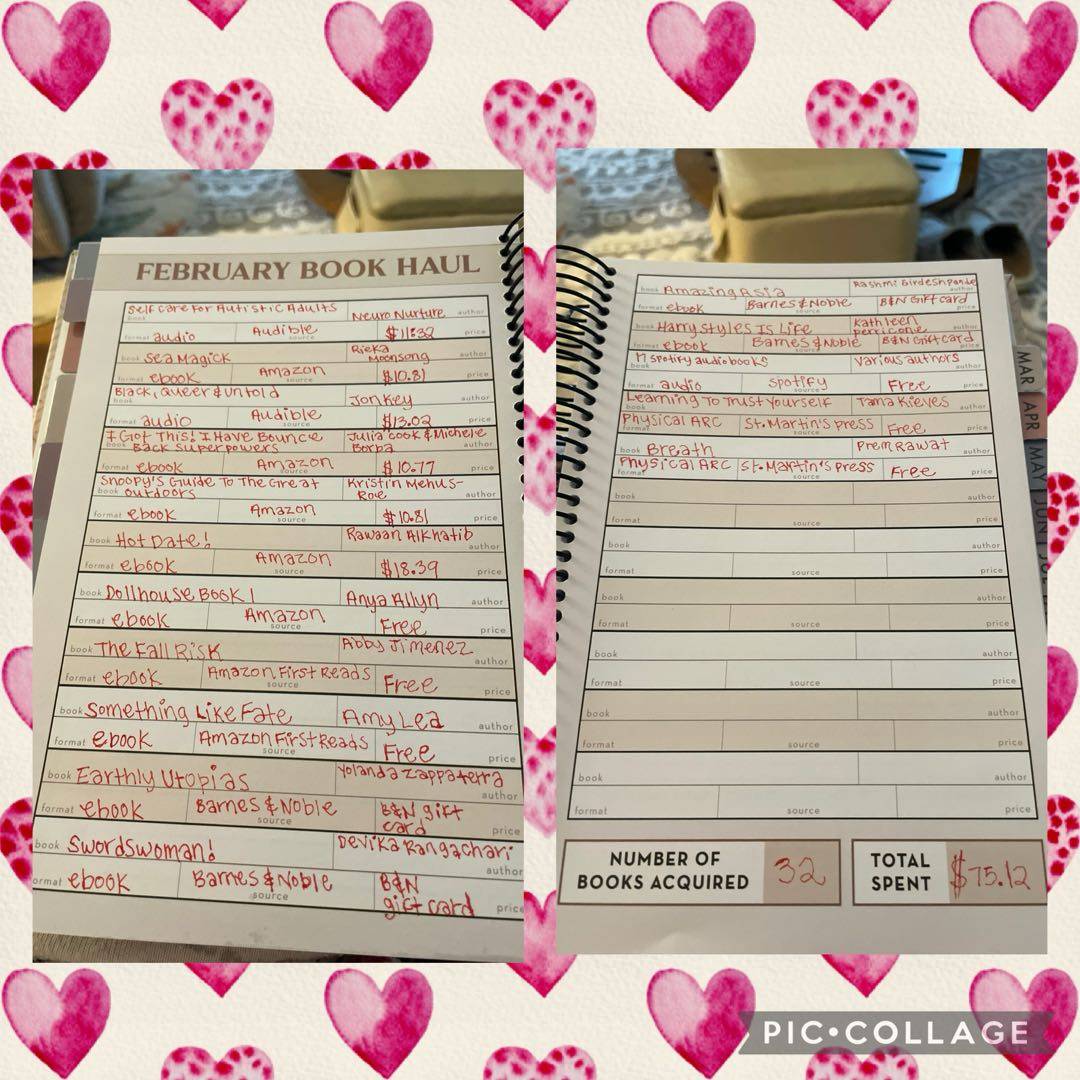 FEBRUARY BOOK HAUL
Self Care For Autistic Adults Neuro Nurture
book author
audio Audible $11.32
format source price
Sea Magick Rieka Moonsong
book author
ebook Amazon $10.81
format source price
Black, Queer & Untold Jon Key
book author
audio Audible $13.02
format source price
I Got This! I Have Bounce Julia Cook & Michele
Back Superpowers Borba
book author
ebook Amazon $10.77
format source price
Snoopy's Guide To The Great Kristin Mehus-
Outdoors Roe
book author
ebook Amazon $10.81
format source price
Hot Date! Rawaan Alkhatib
book author
ebook Amazon $18.39
format source price
Dollhouse Book 1 Anya Allyn
book author
ebook Amazon Free
format source price
The Fall Risk Abby Jimenez
book author
ebook Amazon First Reads Free
format price
Something Like Fate Amy Lea
book author
ebook Amazon First Reads Free
format source price
Earthly Utopias Yolanda Zappaterra
book author
ebook Barnes & Noble B&N gift
card
format source price
Swordswoman! Devika Rangachari
book author
ebook Barnes & Noble B&N
gift card
format source price
Amazing Asia Rashmi Sirdeshpande
book author
ebook Barnes & Noble B&N Gift card
format source
Harry Styles Is Life Kathleen
Perricone
book
ebook Barnes & Noble B&N Gift card
format source
17 Spotify audiobooks Various authors
book author
audio Spotify Free
format source price
Learning To Trust Yourself Tama Kieves
book author
Physical ARC St. Martin's Press Free
source price
Breath Prem Rawat
book author
Physical ARC St. Martin's Press Free
source price
book author
format source price
book author
format source price
book author
format source price
book author
format source price
book author
format source price
book author
format source price
NUMBER OF
BOOKS ACQUIRED 32
TOTAL
SPENT $75.12
MAR
APR
MAY
JUN
PIC•COLLAGE